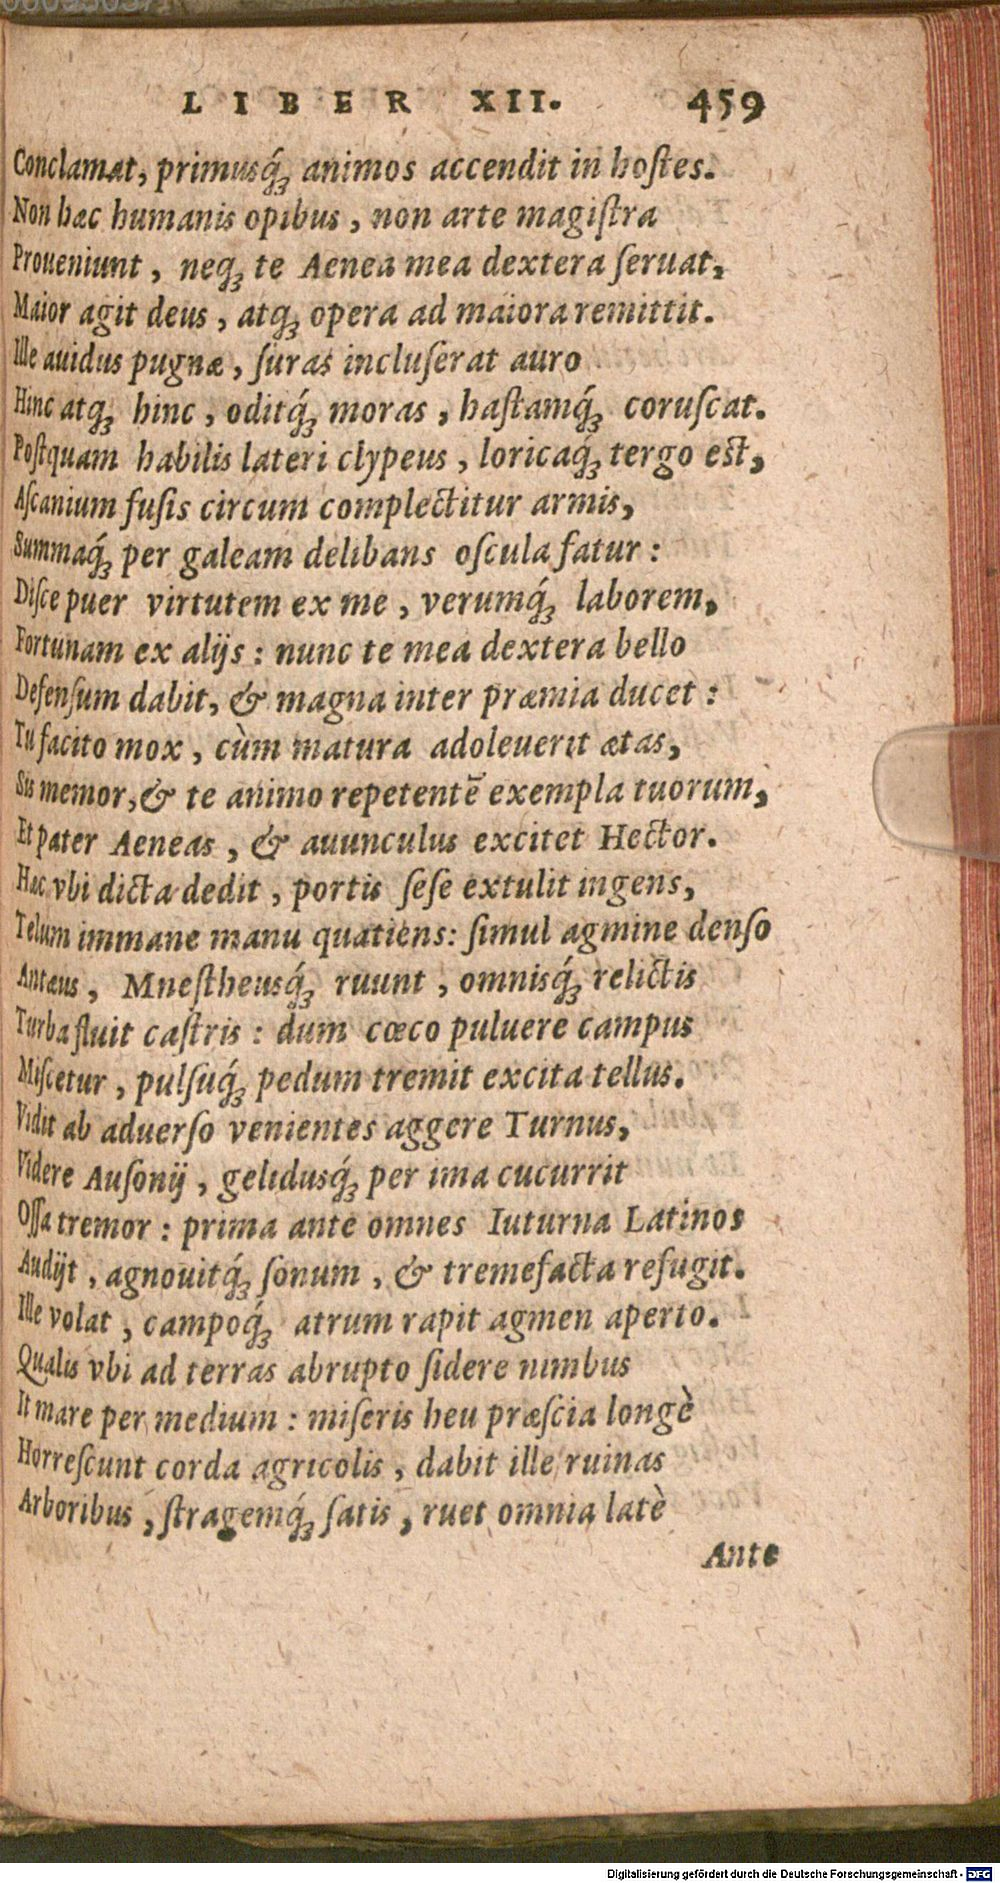 LIBER XII. 459
Conclamat, primusq́ꝫ animos accendit in hoſtes.
Non hæc humanis opibus, non arte magiſtra
Proueniunt, neqꝫ te Aenea mea dextera ſeruat,
Maior agit deus, atqꝫ opera ad maiora remittit.
Ille auidus pugnæ, ſuras incluſerat auro
Hinc atqꝫ hinc, oditq́ꝫ moras, haſtamq́ꝫ coruſcat.
Poſtquam habilis lateri clypeus, loricaq́ꝫ tergo eſt,
Aſcanium fuſis circum complectitur armis,
Summaq́ꝫ per galeam delibans oſcula fatur:
Diſce puer virtutem ex me, verumq́ꝫ laborem,
Fortunam ex alijs: nunc te mea dextera bello
Defenſum dabit, & magna inter præmia ducet:
Tu facito mox, cùm matura adoleuerit ætas,
Sis memor, & te animo repetentē exempla tuorum,
Et pater Aeneas, & auunculus excitet Hector.
Hæc vbi dicta dedit, portis ſeſe extulit ingens,
Telum immane manu quatiens: ſimul agmine denſo
Antæus, Mneſtheusq́ꝫ ruunt, omnisq́ꝫ relictis
Turba fluit caſtris: dum cœco puluere campus
Miſcetur, pulſuq́ꝫ pedum tremit excita tellus.
Vidit ab aduerſo venientes aggere Turnus,
Videre Auſonij, gelidusq́ꝫ per ima cucurrit
Oſſa tremor: prima ante omnes Iuturna Latinos
Audijt, agnouitq́ꝫ ſonum, & tremefacta refugit.
Ille volat, campoq́ꝫ atrum rapit agmen aperto.
Qualis vbi ad terras abrupto ſidere nimbus
It mare per medium: miſeris heu præſcia longè
Horreſcunt corda agricolis, dabit ille ruinas
Arboribus, ſtragemq́ꝫ ſatis, ruet omnia latè
Ante
Digitalisierung gefördert durch die Deutsche Forschungsgemeinschaft - DFG